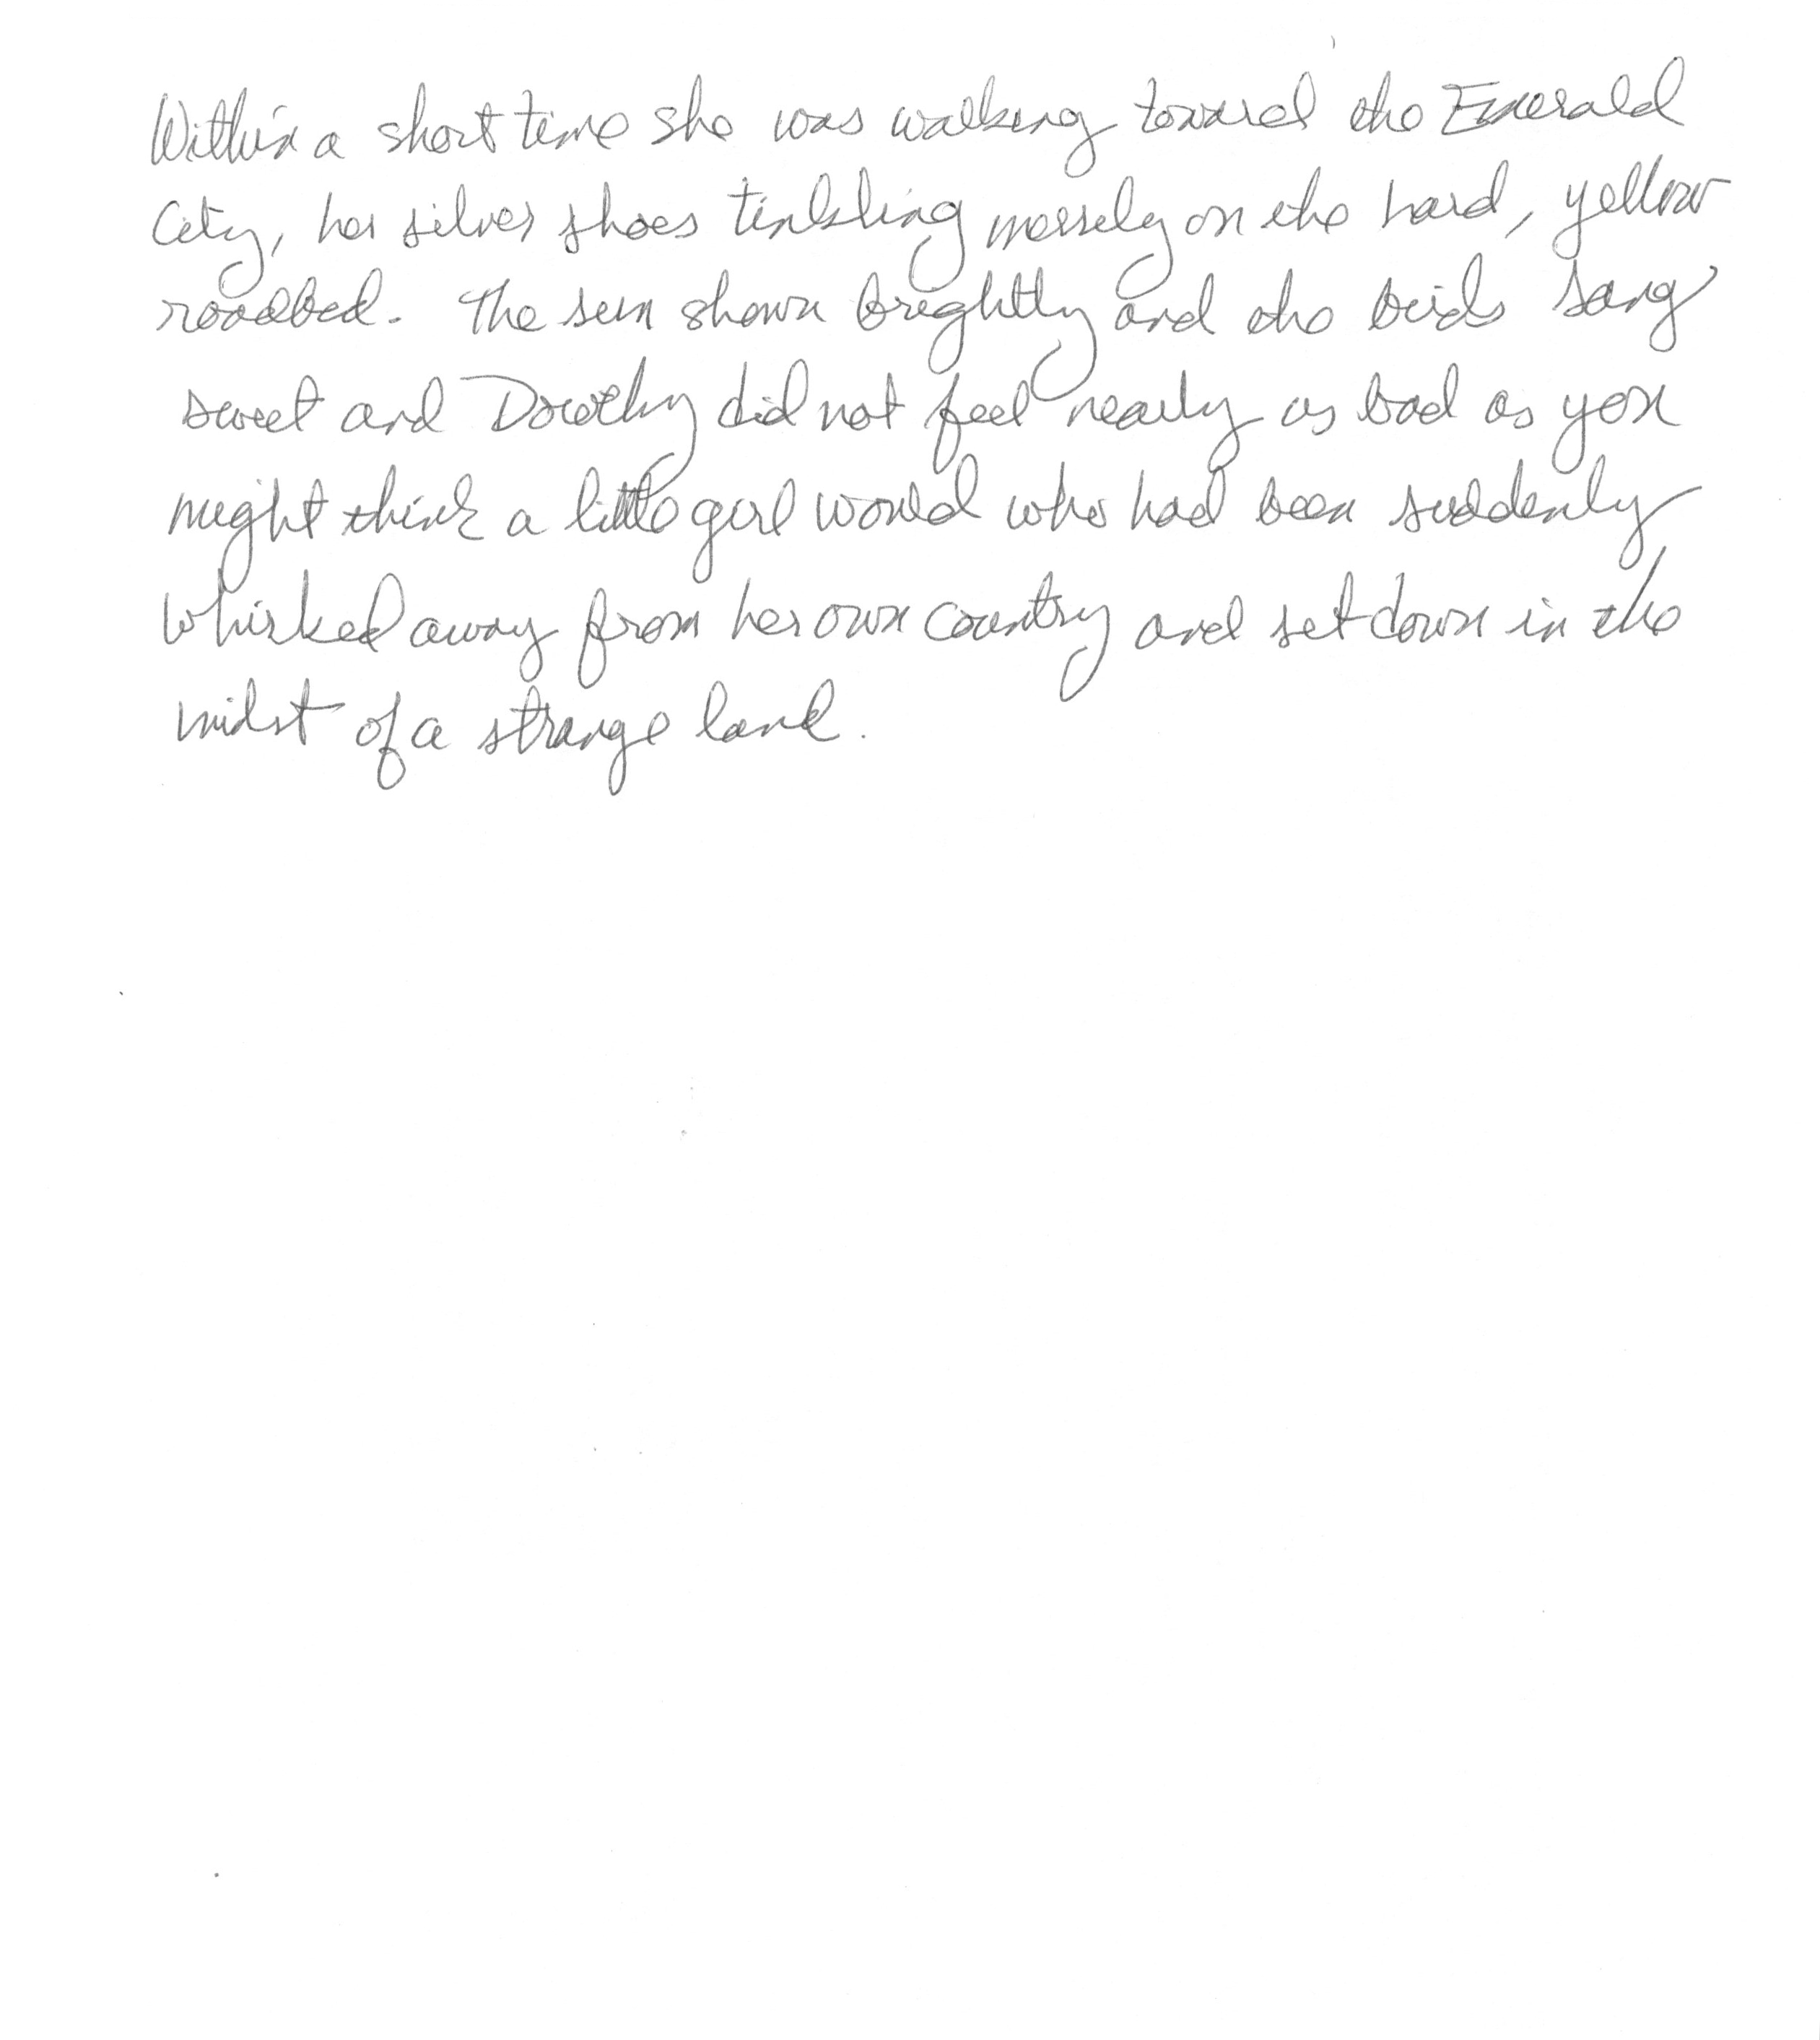 Within a short time she was walking toward the Emerald
City, her silver shoes tinkling merrely on the hard, yellow
roadbed. The sun shown brightly and the birds sang
sweet and Dorothy did not feel nearly as bad as you
might think a little girl would who had been suddenly
whisked away from her own country and set down in the
midst of a strange land.